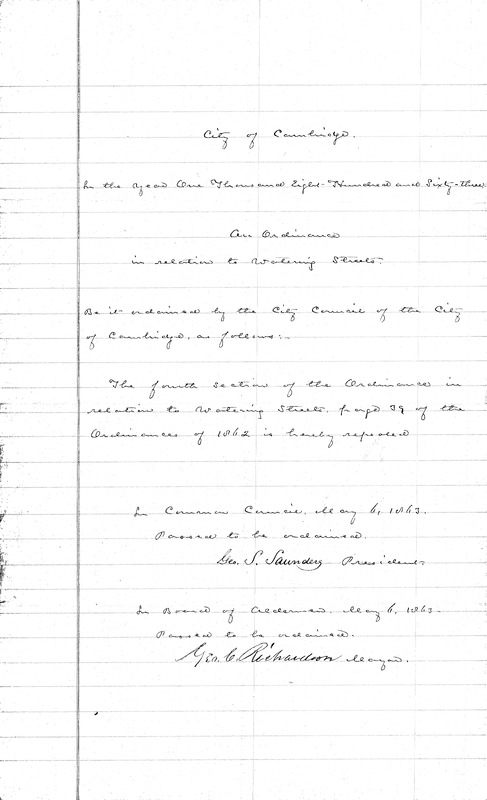 City of Cambridge.
In the year One Thousand Eight-Hundred and Sixty-three.
An Ordinance
in relation to Watering Streets.
Be it ordained by the City Council of the City
of Cambridge, as follows:-
The fourth section of the Ordinance in
relation to Watering Streets, page 39 of the
Ordinances of 1862 is hereby repealed
In Common Council, May 6, 1863.
Passed to be ordained.
Geo. S. Saunders President
In Board of Aldermen, May 6, 1863.
Passed to be ordained.
Geo. C. Richardson Mayor.